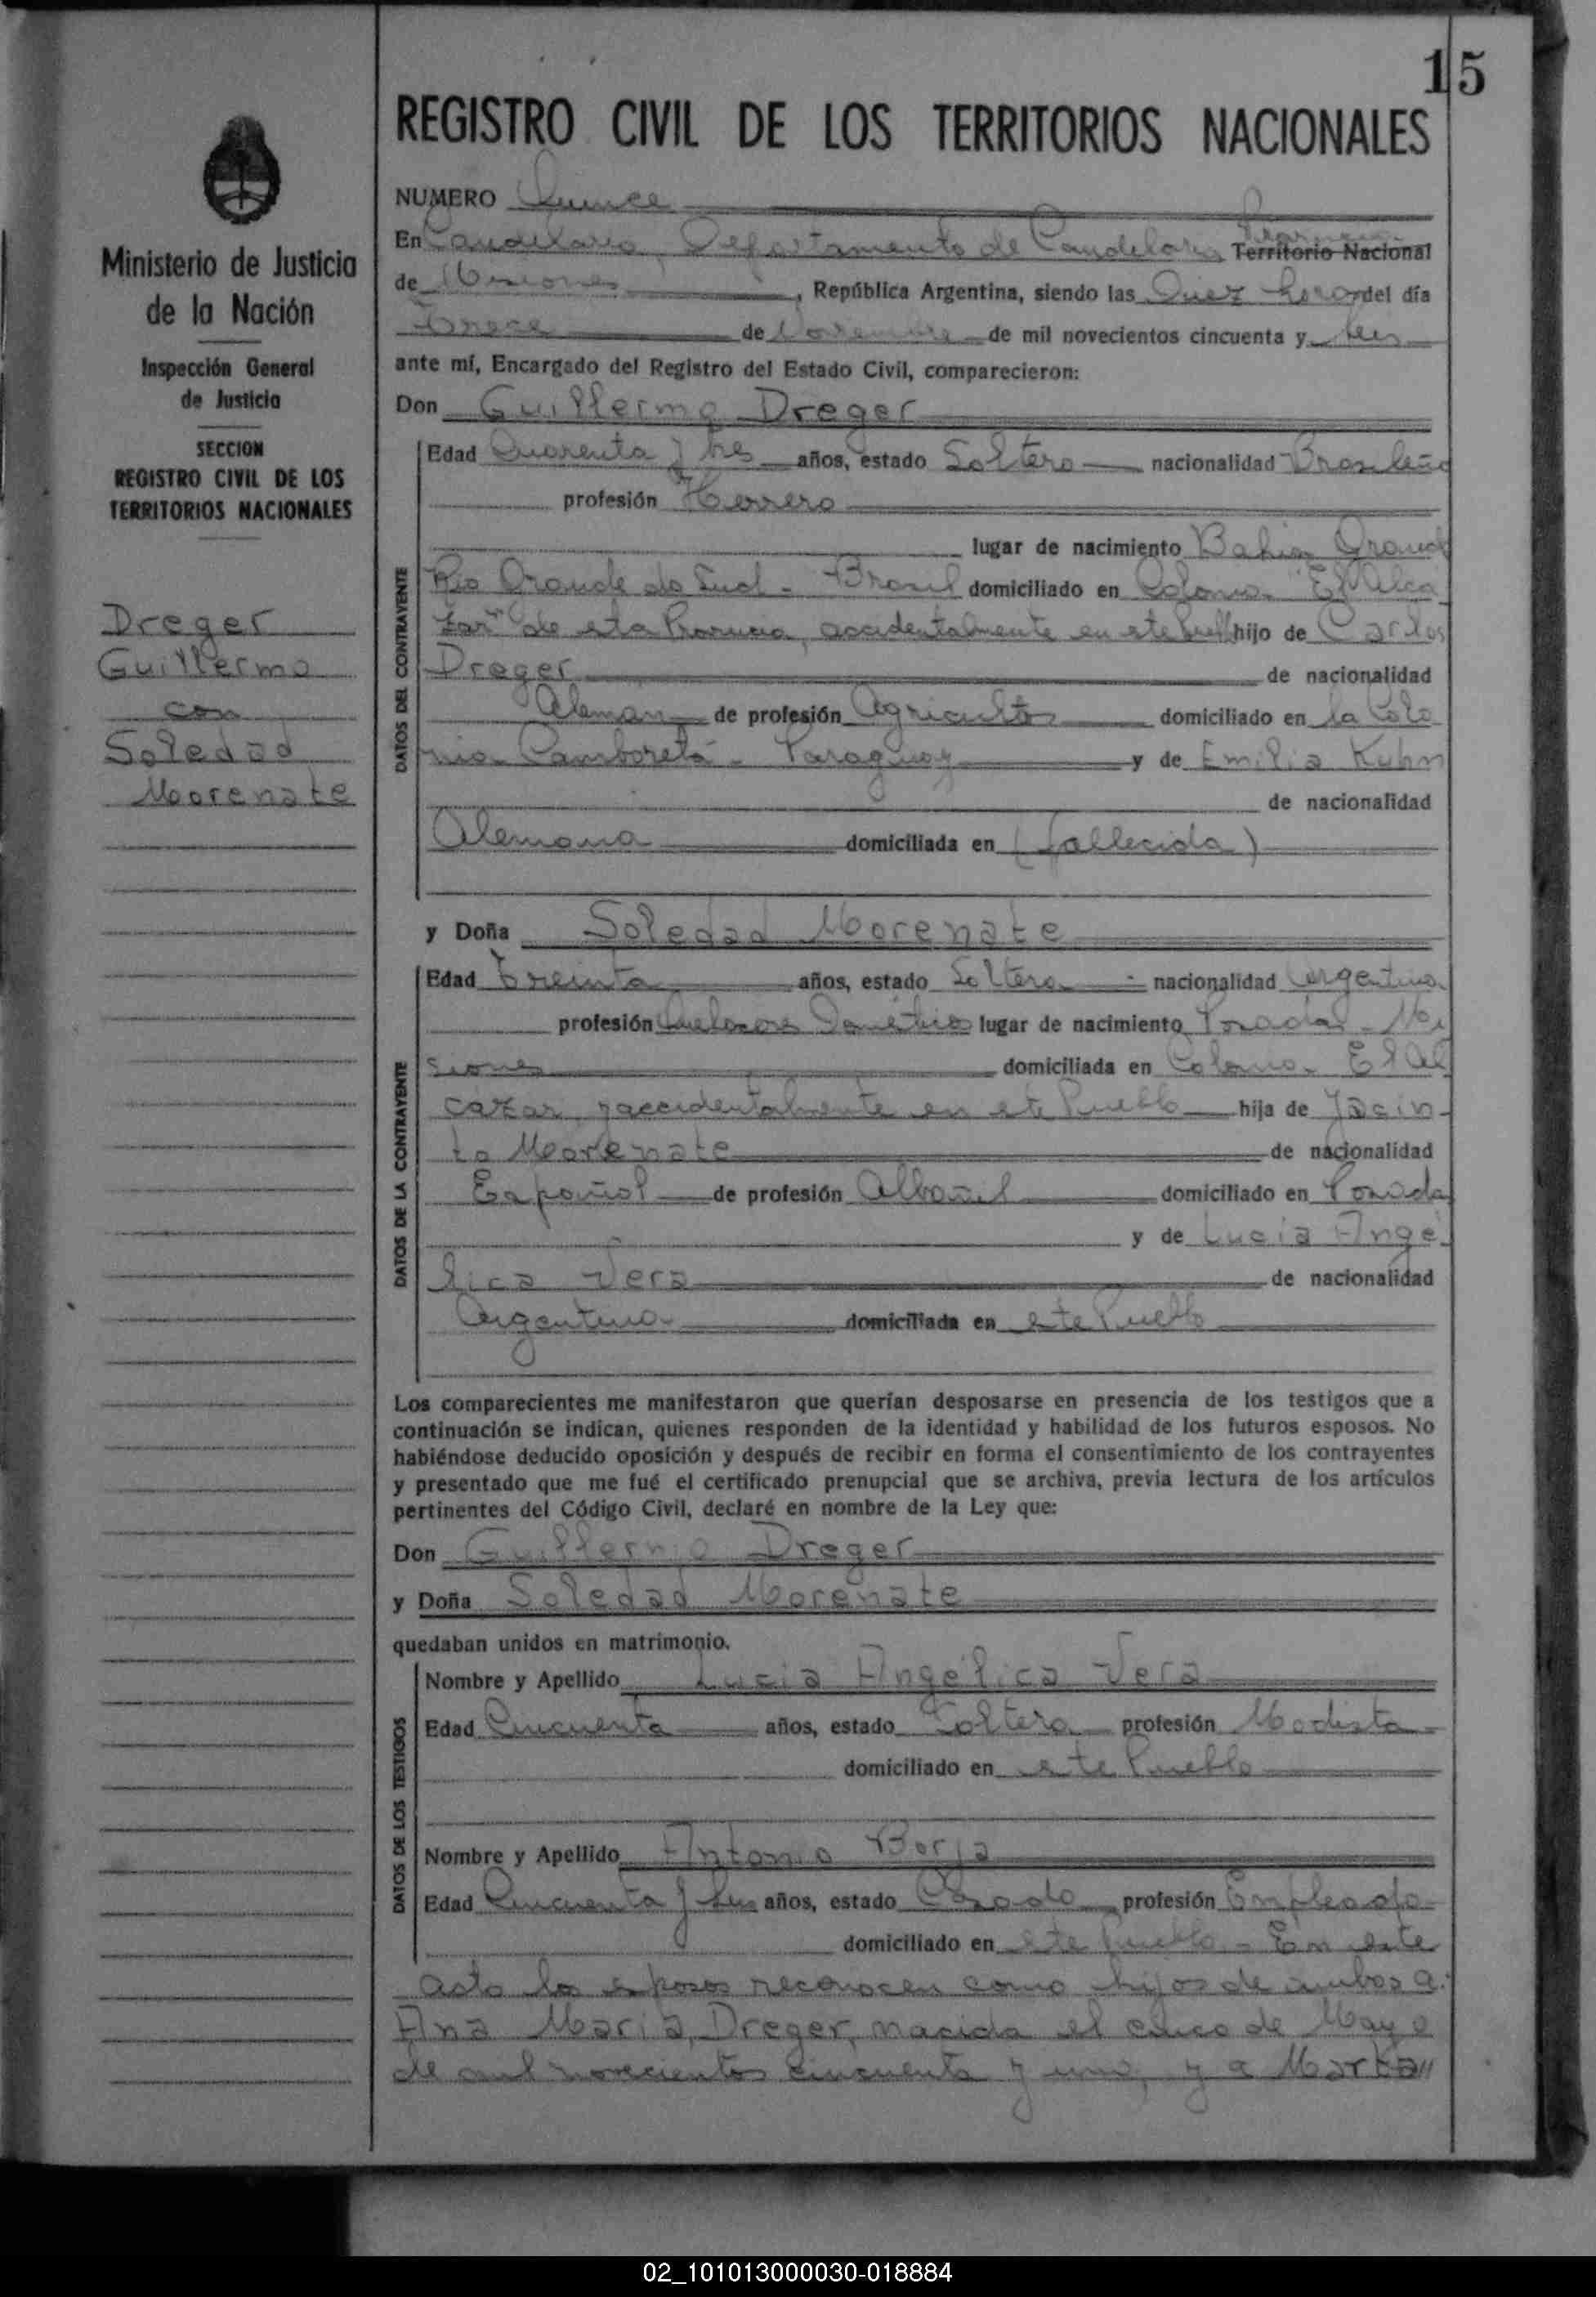 15
REGISTRO CIVIL DE LOS TERRITORIOS NACIONALES
Ministerio de Justicia
de la Nación
Inspección General
de Justicia
SECCION
REGISTRO CIVIL DE LOS
TERRITORIOS NACIONALES
Dreger
Guillermo
con
Soledad
Morenate
NUMERO Quince
Provincia
En Candelaria, Departamento de Candelaria Territorio Nacional
de Misiones, República Argentina, siendo las Diez horas del día
Trece de Noviembre de mil novecientos cincuenta y seis
ante mí, Encargado del Registro del Estado Civil, comparecieron:
Don Guillermo Dreger
DATOS DEL CONTRAYENTE
Edad Cuarenta y tres años, estado Soltero nacionalidad Brasileño
profesión Herrero
lugar de nacimiento Bahia Grande
Rio Grande do Sud - Brasil domiciliado en Colonia "El Alca
zar" de esta Provincia, accidentalmente en este Pueblo hijo de Carlos
Dreger de nacionalidad
Aleman de profesión Agricultor domiciliado en la Colo
nia Camboretá - Paraguay y de Emilia Kuhn
de nacionalidad
Alemana domiciliada en (fallecida)
y Doña Soledad Morenate
DATOS DE LA CONTRAYENTE
Edad Treinta años, estado Soltera - nacionalidad Argentina
profesión Quehaceres Domésticos lugar de nacimiento Posadas - Mi
siones domiciliada en Colonia El Al
cazar, y accidentalmente en este Pueblo hija de Jacin-
to Morenate de nacionalidad
Español de profesión Albañil domiciliado en Posadas
y de Lucia Angé
lica Vera de nacionalidad
Argentina domiciliada en este Pueblo
Los comparecientes me manifestaron que querían desposarse en presencia de los testigos que a
continuación se indican, quienes responden de la identidad y habilidad de los futuros esposos. No
habiéndose deducido oposición y después de recibir en forma el consentimiento de los contrayentes
y presentado que me fué el certificado prenupcial que se archiva, previa lectura de los artículos
pertinentes del Código Civil, declaré en nombre de la Ley que:
Don Guillermo Dreger
y Doña Soledad Morenate
quedaban unidos en matrimonio.
DATOS DE LOS TESTIGOS
Nombre y Apellido Lucia Angélica Vera
Edad Cincuenta años, estado Soltera profesión Modista -
domiciliado en este Pueblo
Nombre y Apellido Antonio Borja
Edad Cincuenta y seis años, estado Casado profesión Empleado -
domiciliado en este Pueblo - En este
acto los esposos reconocen como hijos de ambos a:
Ana Maria, Dreger, nacida el cinco de Mayo
de mil novecientos cincuenta y uno, y a Marta"
02_101013000030-018884